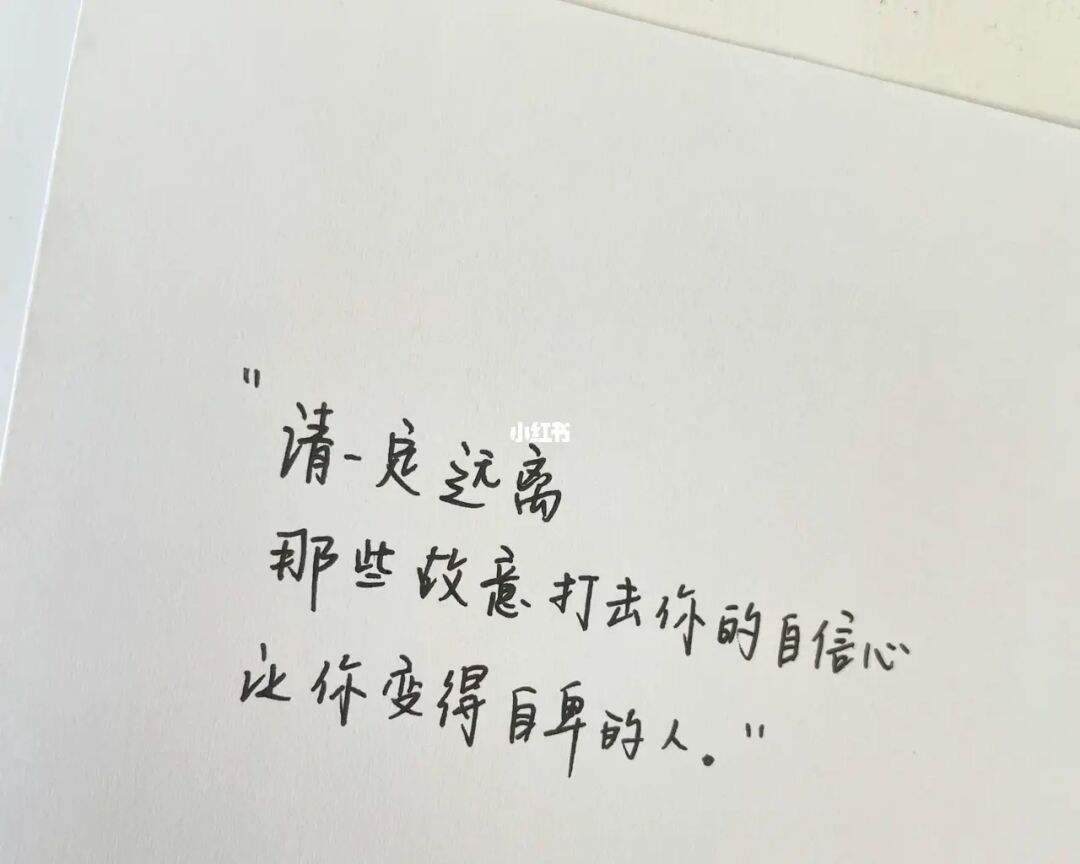 小红书
"请一定远离
那些故意打击你的自信心
让你变得自卑的人."